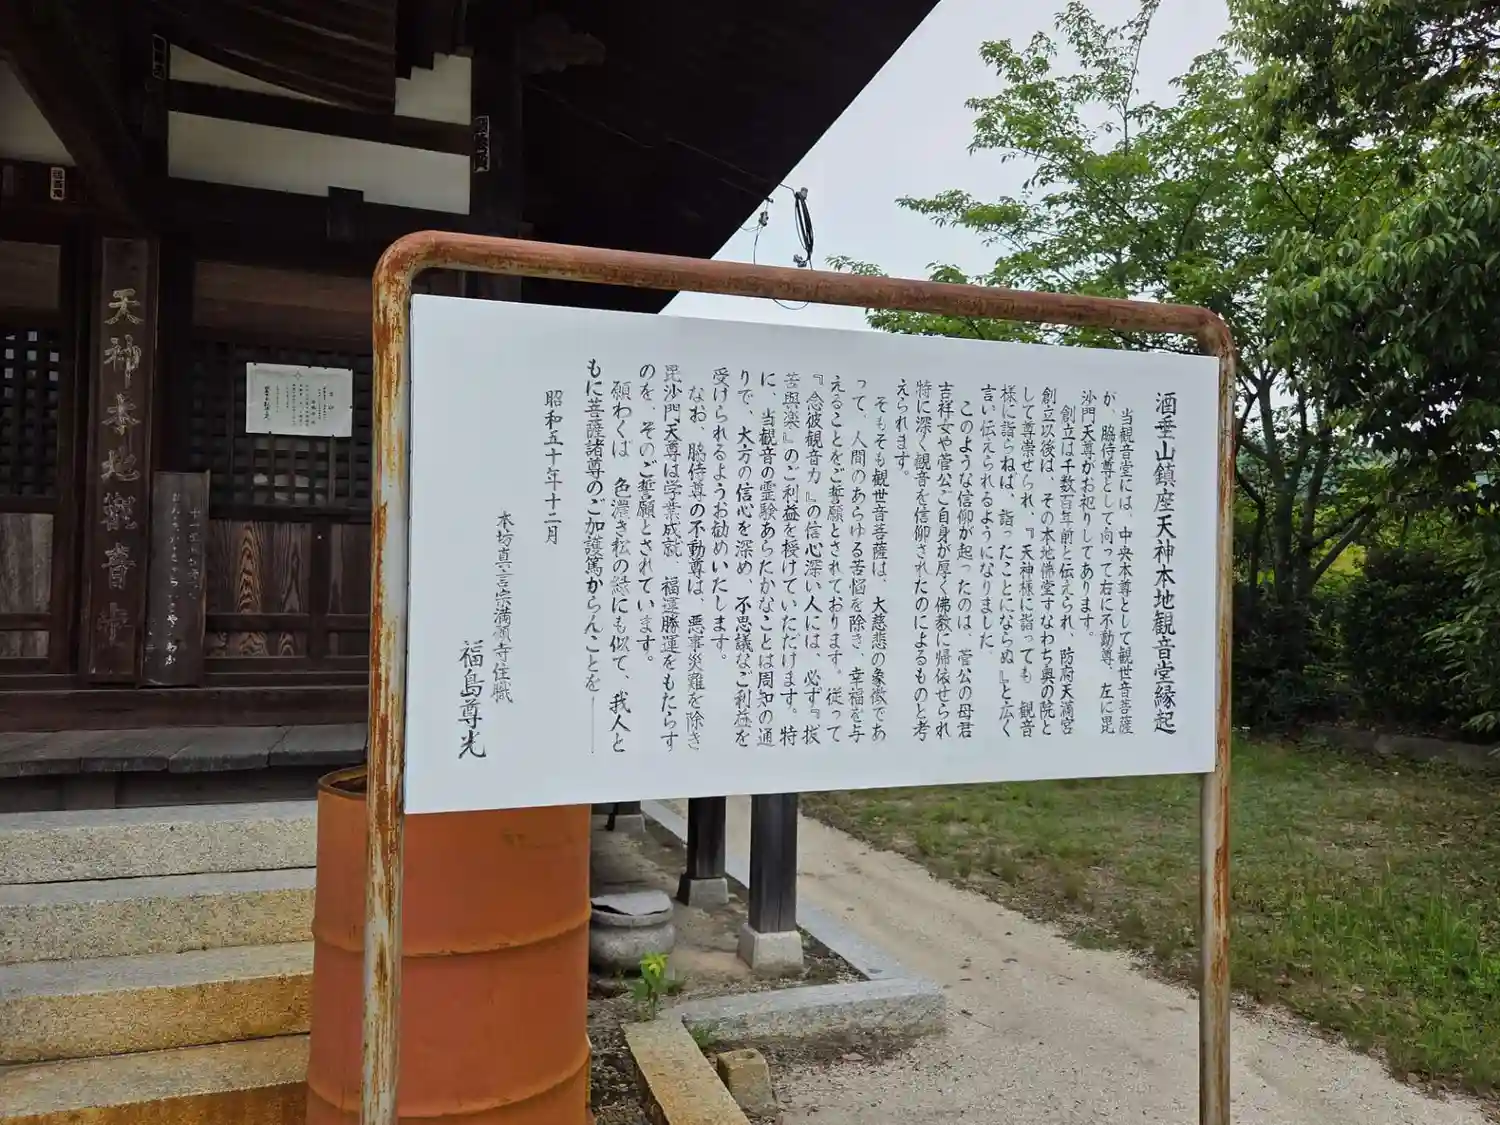 酒垂山鎮座天神本地観音堂縁起
当観音堂には、中央本尊として観世音菩薩
が、脇侍尊として向って右に不動尊、左に毘
沙門天尊がお祀りしてあります。
創立は千数百年前と伝えられ、防府天満宮
創立以後は、その本地佛堂すなわち奥の院と
して尊崇せられ、『天神様に詣っても、観音
様に詣らねは、詣ったことにならぬ』と広く
言い伝えられるようになりました。
このような信仰が起ったのは、菅公の母君
吉祥女や菅公ご自身が厚く佛教に帰依せられ
特に深く観音を信仰されたのによるものと考
えられます。
そもそも観世音菩薩は、大慈悲の象徴であ
って、人間のあらゆる苦悩を除き、幸福を与
えることをご誓願とされております。従って
『念彼観音力』の信心深い人には、必ず『抜
苦與楽』のご利益を授けていただけます。特
に、当観音の霊験あらたかなことは周知の通
りで、大方の信心を深め、不思議なご利益を
受けられるようお勧めいたします。
なお、脇侍尊の不動尊は、悪事災難を除き
毘沙門天尊は学業成就、福運勝運をもたらす
のを、そのご誓願とされています。
願わくば、色濃き松の緑にも似て、我人と
もに菩薩諸尊のご加護篤からんことを――
昭和五十年十二月
本坊真言宗満願寺住職
福島尊光
天神本地観音堂